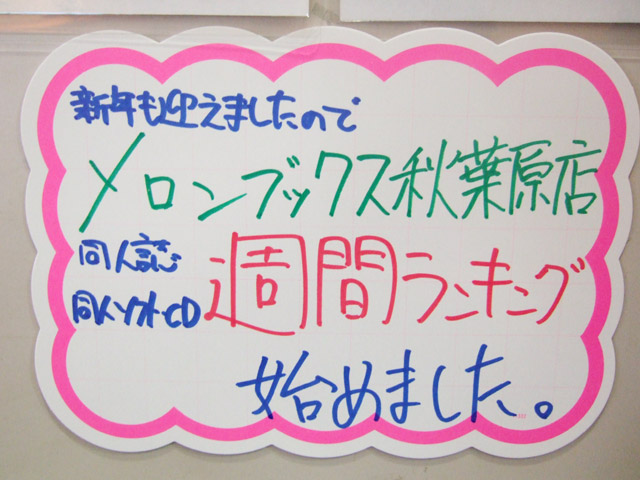 新年も迎えましたので
メロンブックス秋葉原店
同人誌
同人ソフト・CD
週間ランキング
始めました。